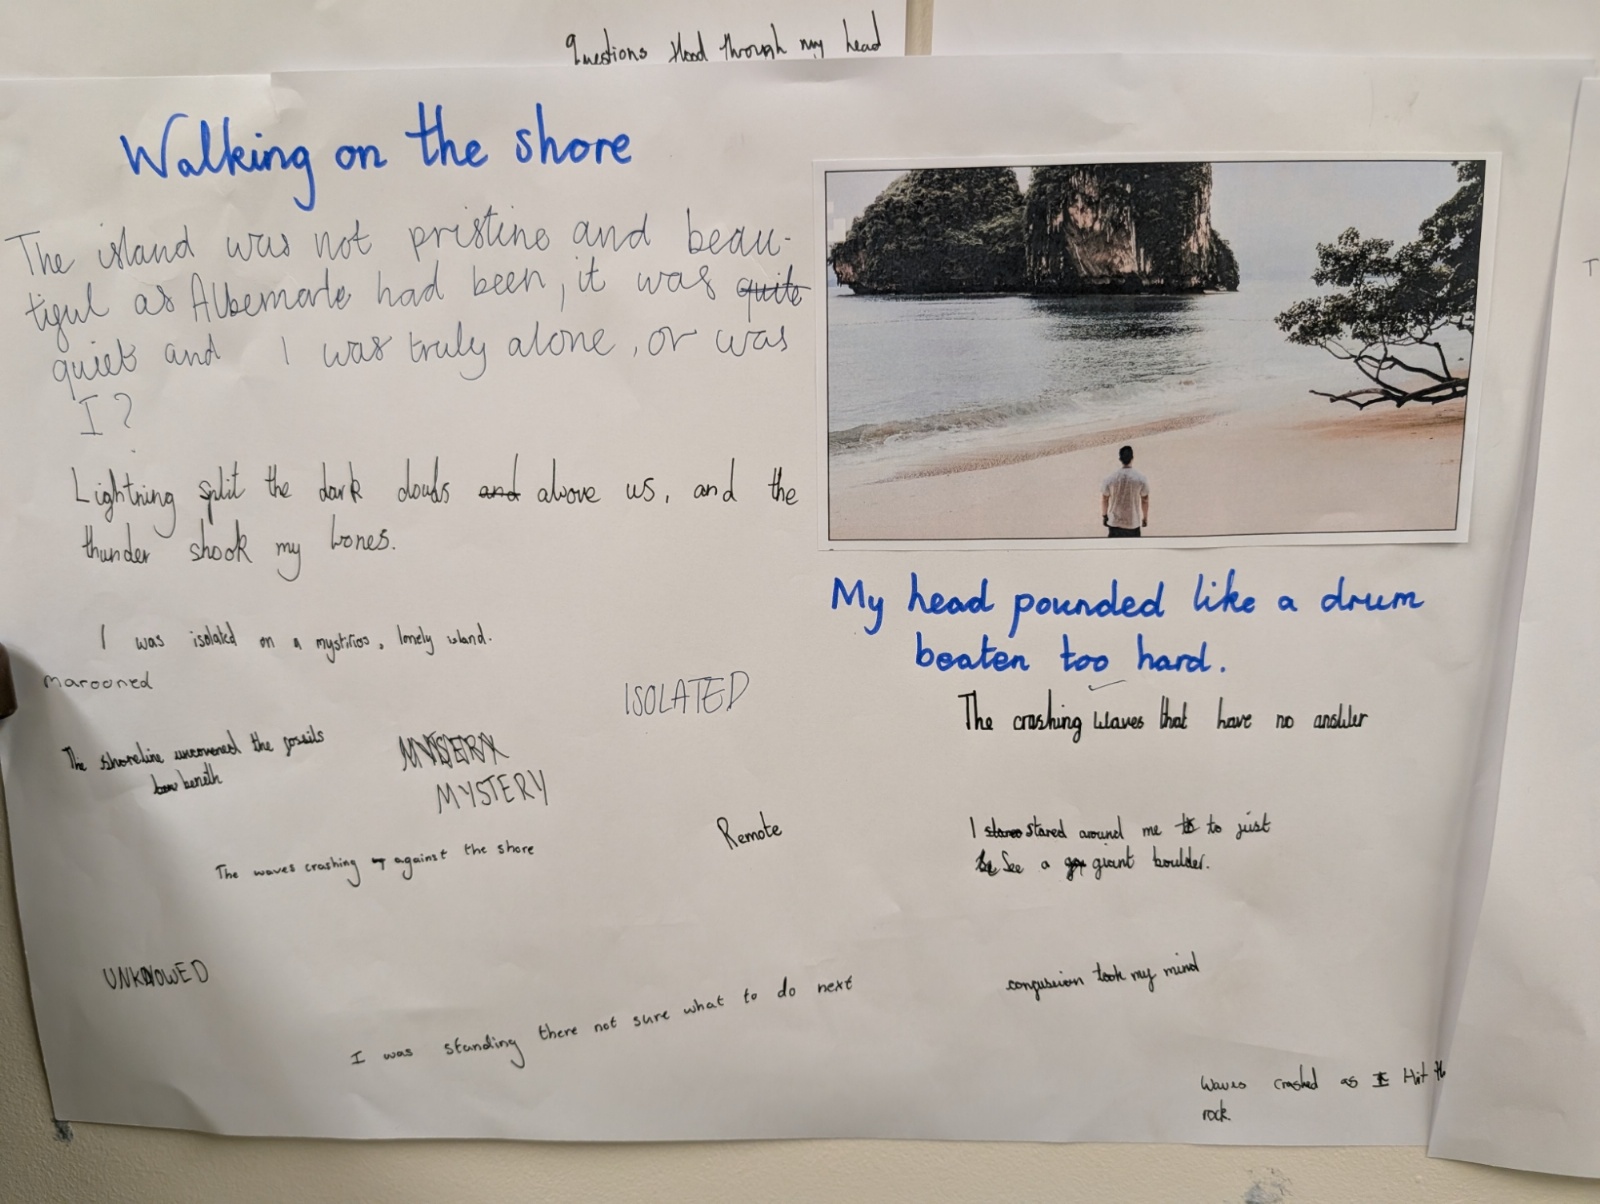 Questions flood through my head
Walking on the shore
The island was not pristine and beau-
tiful as Albemarle had been, it was quite
quiet and I was truly alone, or was
I?
Lightning split the dark clouds and above us, and the
thunder shook my bones.
I was isolated on a mystirios, lonely island.
marooned
ISOLATED
The shoreline uncovered the fossils
beneith
MYSTERY
MYSTERY
The waves crashing against the shore
Remote
UNKNOWED
I was standing there not sure what to do next
My head pounded like a drum
beaten too hard.
The crashing waves that have no answer
I stared around me to just
See a giant boulder.
confusion took my mind
Waves crashed as I Hit the
rock
T